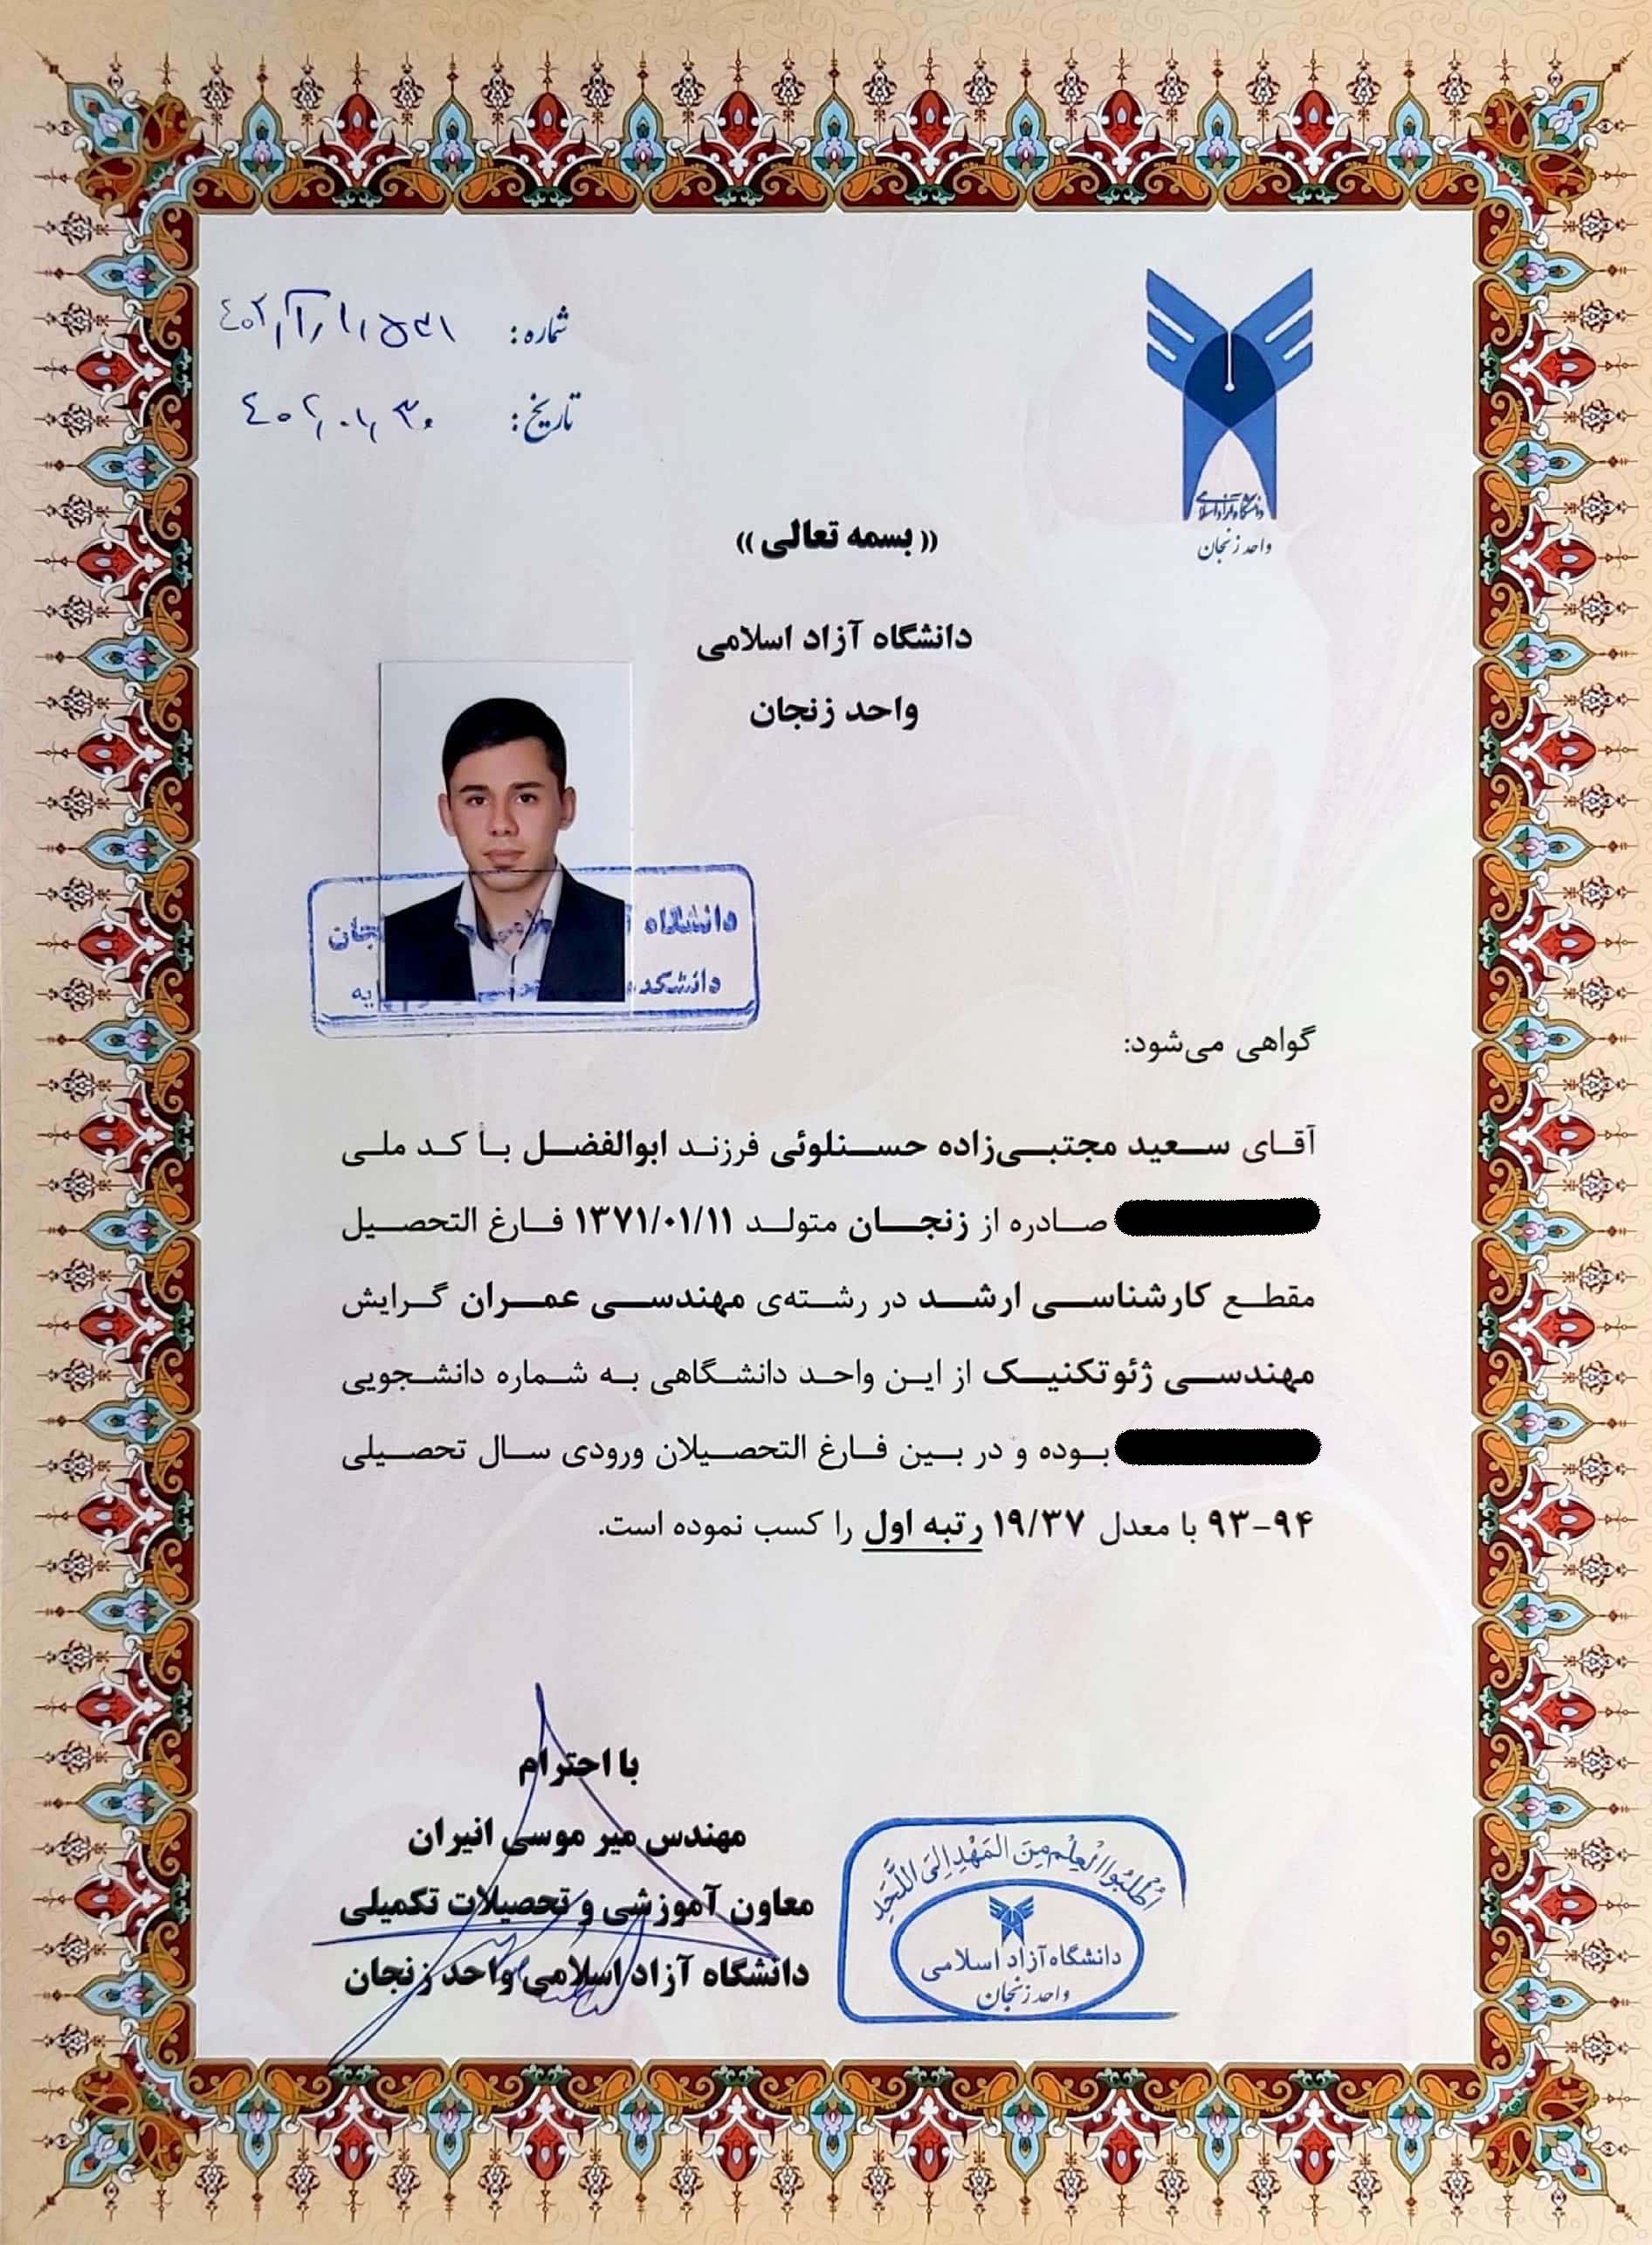 شماره: ۴۰۲/آ/۱/۵۳۱
تاریخ: ۴۰۲/۰۱/۳۰
دانشگاه آزاد اسلامی
واحد زنجان
(( بسمه تعالی ))
دانشگاه آزاد اسلامی
واحد زنجان
دانشگاه
دانشکده
گواهی می‌شود:
آقای سعید مجتبی‌زاده حسنلوئی فرزند ابوالفضل با کد ملی
صادره از زنجان متولد ۱۳۷۱/۰۱/۱۱ فارغ التحصیل
مقطع کارشناسی ارشد در رشته‌ی مهندسی عمران گرایش
مهندسی ژئوتکنیک از این واحد دانشگاهی به شماره دانشجویی
بوده و در بین فارغ التحصیلان ورودی سال تحصیلی
۹۳-۹۴ با معدل ۱۹/۳۷ رتبه اول را کسب نموده است.
با احترام
مهندس میر موسی انیران
معاون آموزشی و تحصیلات تکمیلی
دانشگاه آزاد اسلامی واحد زنجان
اُطْلُبُوا الْعِلْمَ مِنَ المَهْدِ اِلَی اللَّحَدِ
دانشگاه آزاد اسلامی
واحد زنجان